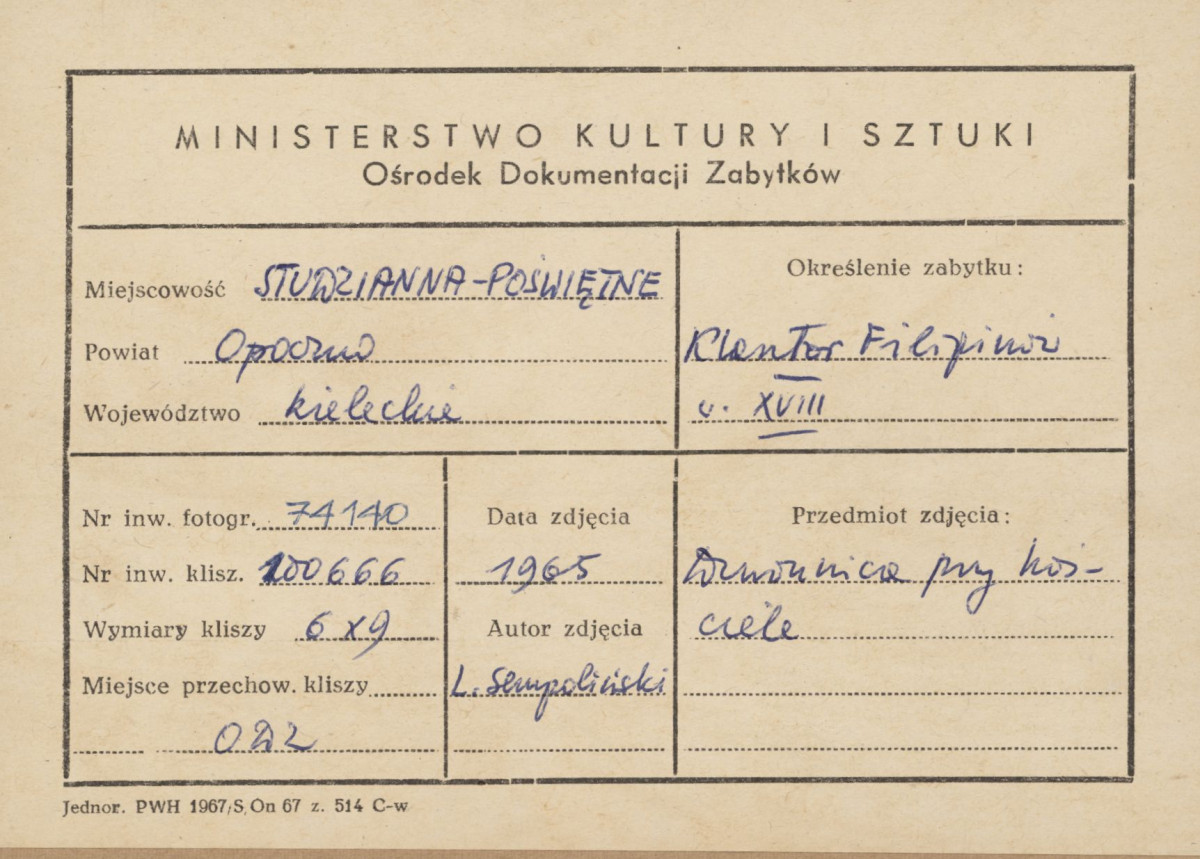 MINISTERSTWO KULTURY I SZTUKI
Ośrodek Dokumentacji Zabytków
Miejscowość STUDZIANNA-POŚWIĘTNE
Powiat Opoczno
Województwo kieleckie
Określenie zabytku:
Klasztor Filipinów
w. XVIII
Nr inw. fotogr. 74140
Nr inw. klisz. 100666
Wymiary kliszy 6x9
Miejsce przechow. kliszy
ODZ
Data zdjęcia
1965
Autor zdjęcia
L. Sempoliński
Przedmiot zdjęcia:
Dzwonnica przy koś-
ciele
Jednor. PWH 1967/S, On 67 z. 514 C-w